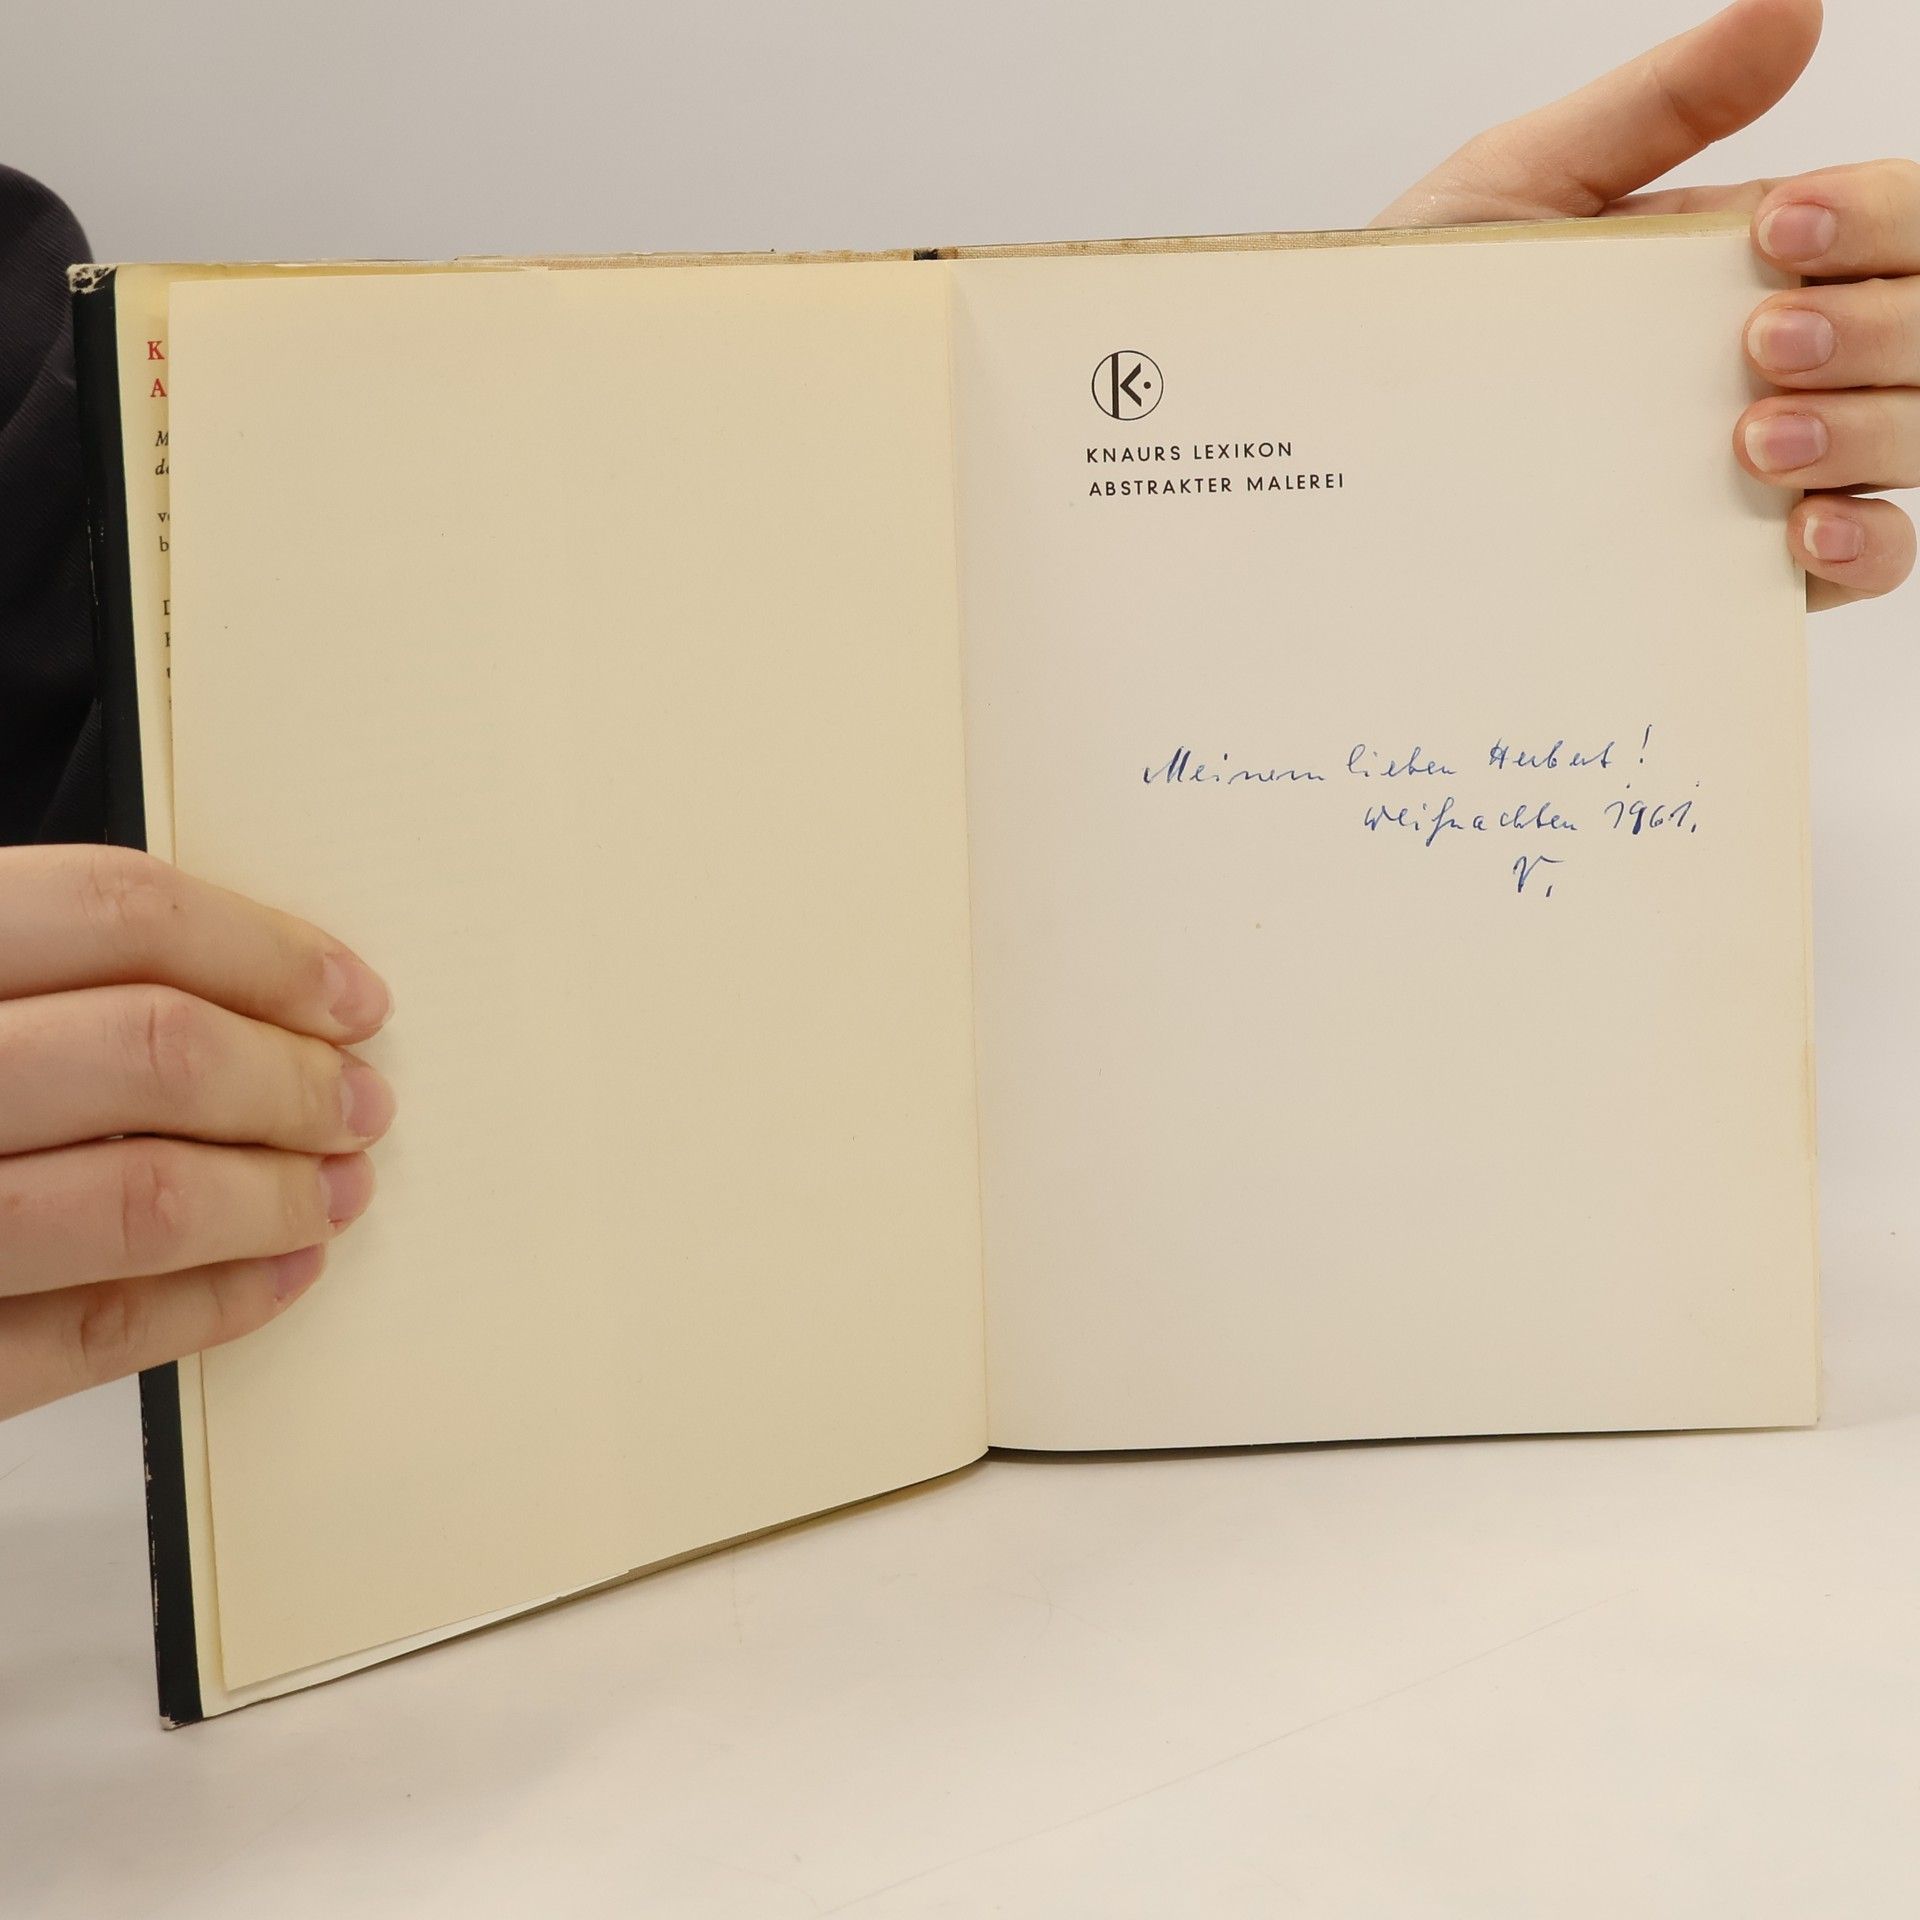 K
A
M
de
b
K·
KNAURS LEXIKON
ABSTRAKTER MALEREI
Meinem lieben Herbert!
Weihnachten 1961.
V.